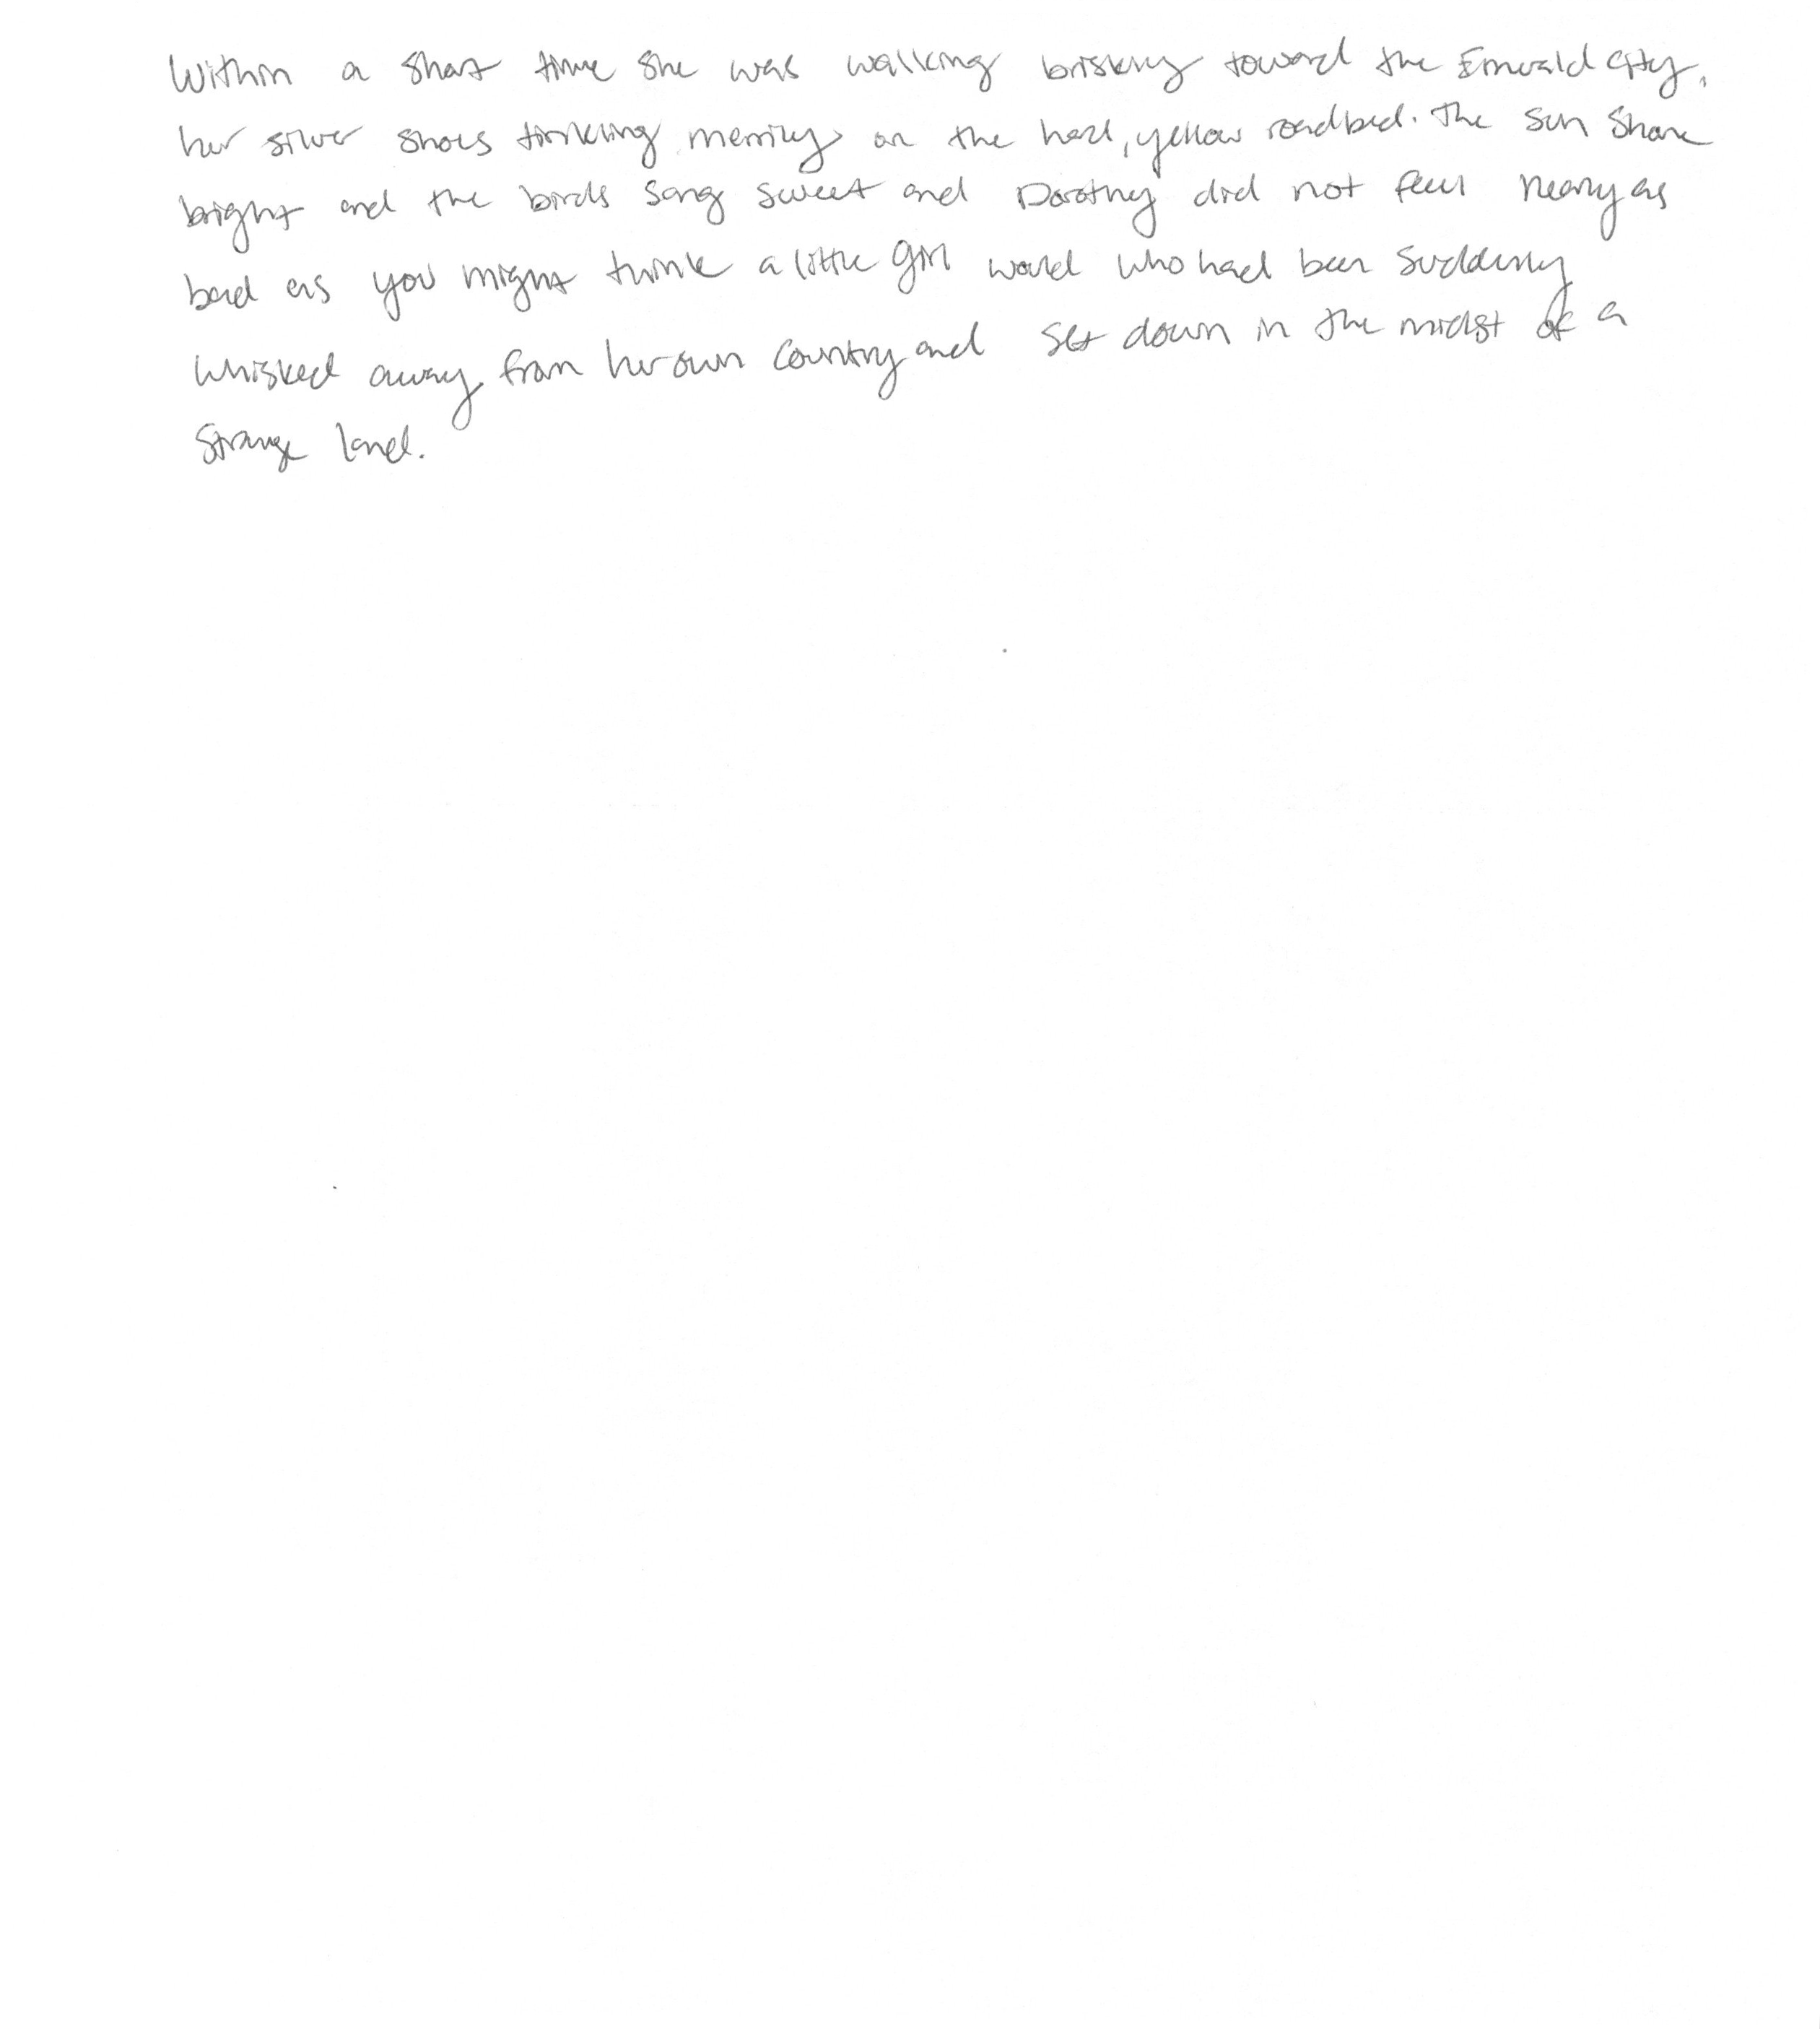 Within a short time she was walking briskly toward the Emerald City,
her silver shoes tinkling merrily on the hard, yellow roadbed. The sun shone
bright and the birds sang sweet and Dorothy did not feel nearly as
bad as you might think a little girl would who had been suddenly
whisked away from her own country and set down in the midst of a
strange land.